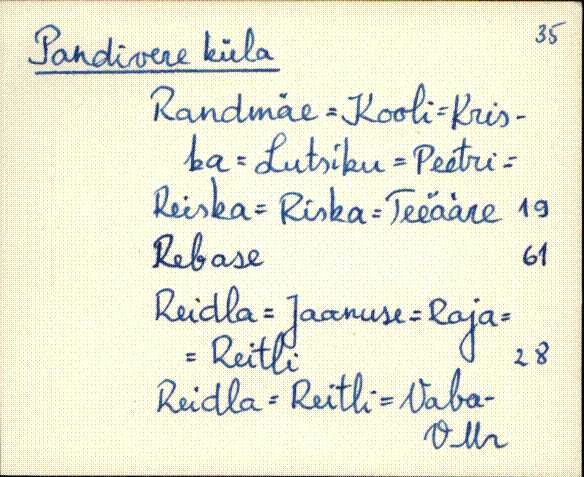 Pandivere küla 35
Randmäe = Kooli = Kris-
ka = Lutsiku = Peetri =
Reiska = Riska = Teeääre 19
Rebase 61
Reidla = Jaanuse = Raja =
= Reitli 28
Reidla = Reitli = Vaba-